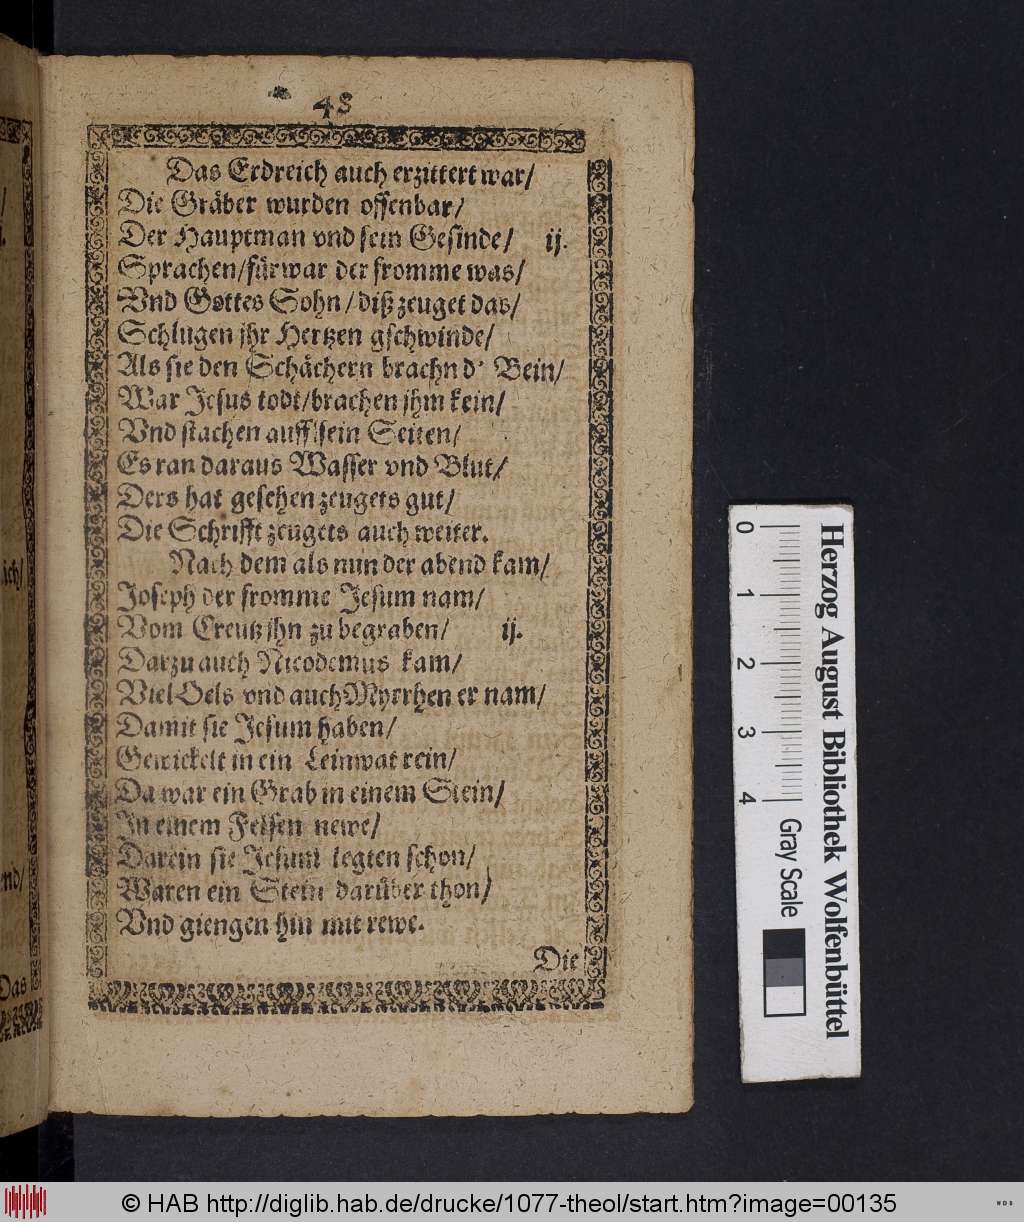 48
Das Erdreich auch erzittert war/
Die Gräber wurden offenbar/
Der Hauptman vnd sein Gesinde/ ij.
Sprachen/fürwar der fromme was/
Vnd Gottes Sohn/diß zeuget das/
Schlugen jhr Hertzen gschwinde/
Als sie den Schächern brachn d' Bein/
War Jesus todt/brachen jhm kein/
Vnd stachen auff sein Seiten/
Es ran daraus Wasser vnd Blut/
Ders hat gesehen zeugets gut/
Die Schrifft zeugets auch weiter.
Nach dem als nun der abend kam/
Joseph der fromme Jesum nam/
Vom Creutz jhn zu begraben/ ij.
Darzu auch Nicodemus kam/
Viel Oels vnd auch Myrrhen er nam/
Damit sie Jesum haben/
Gewickelt in ein Leinwat rein/
Da war ein Grab in einem Stein/
In einem Felsen newe/
Darein sie Jesum legten schon/
Waren ein Stein darüber thon/
Vnd giengen hin mit rewe.
Die
Das
Herzog August Bibliothek Wolfenbüttel
0 1 2 3 4
Gray Scale
© HAB http://diglib.hab.de/drucke/1077-theol/start.htm?image=00135